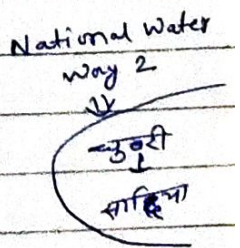 National Water
way 2
धुबरी
सादिया